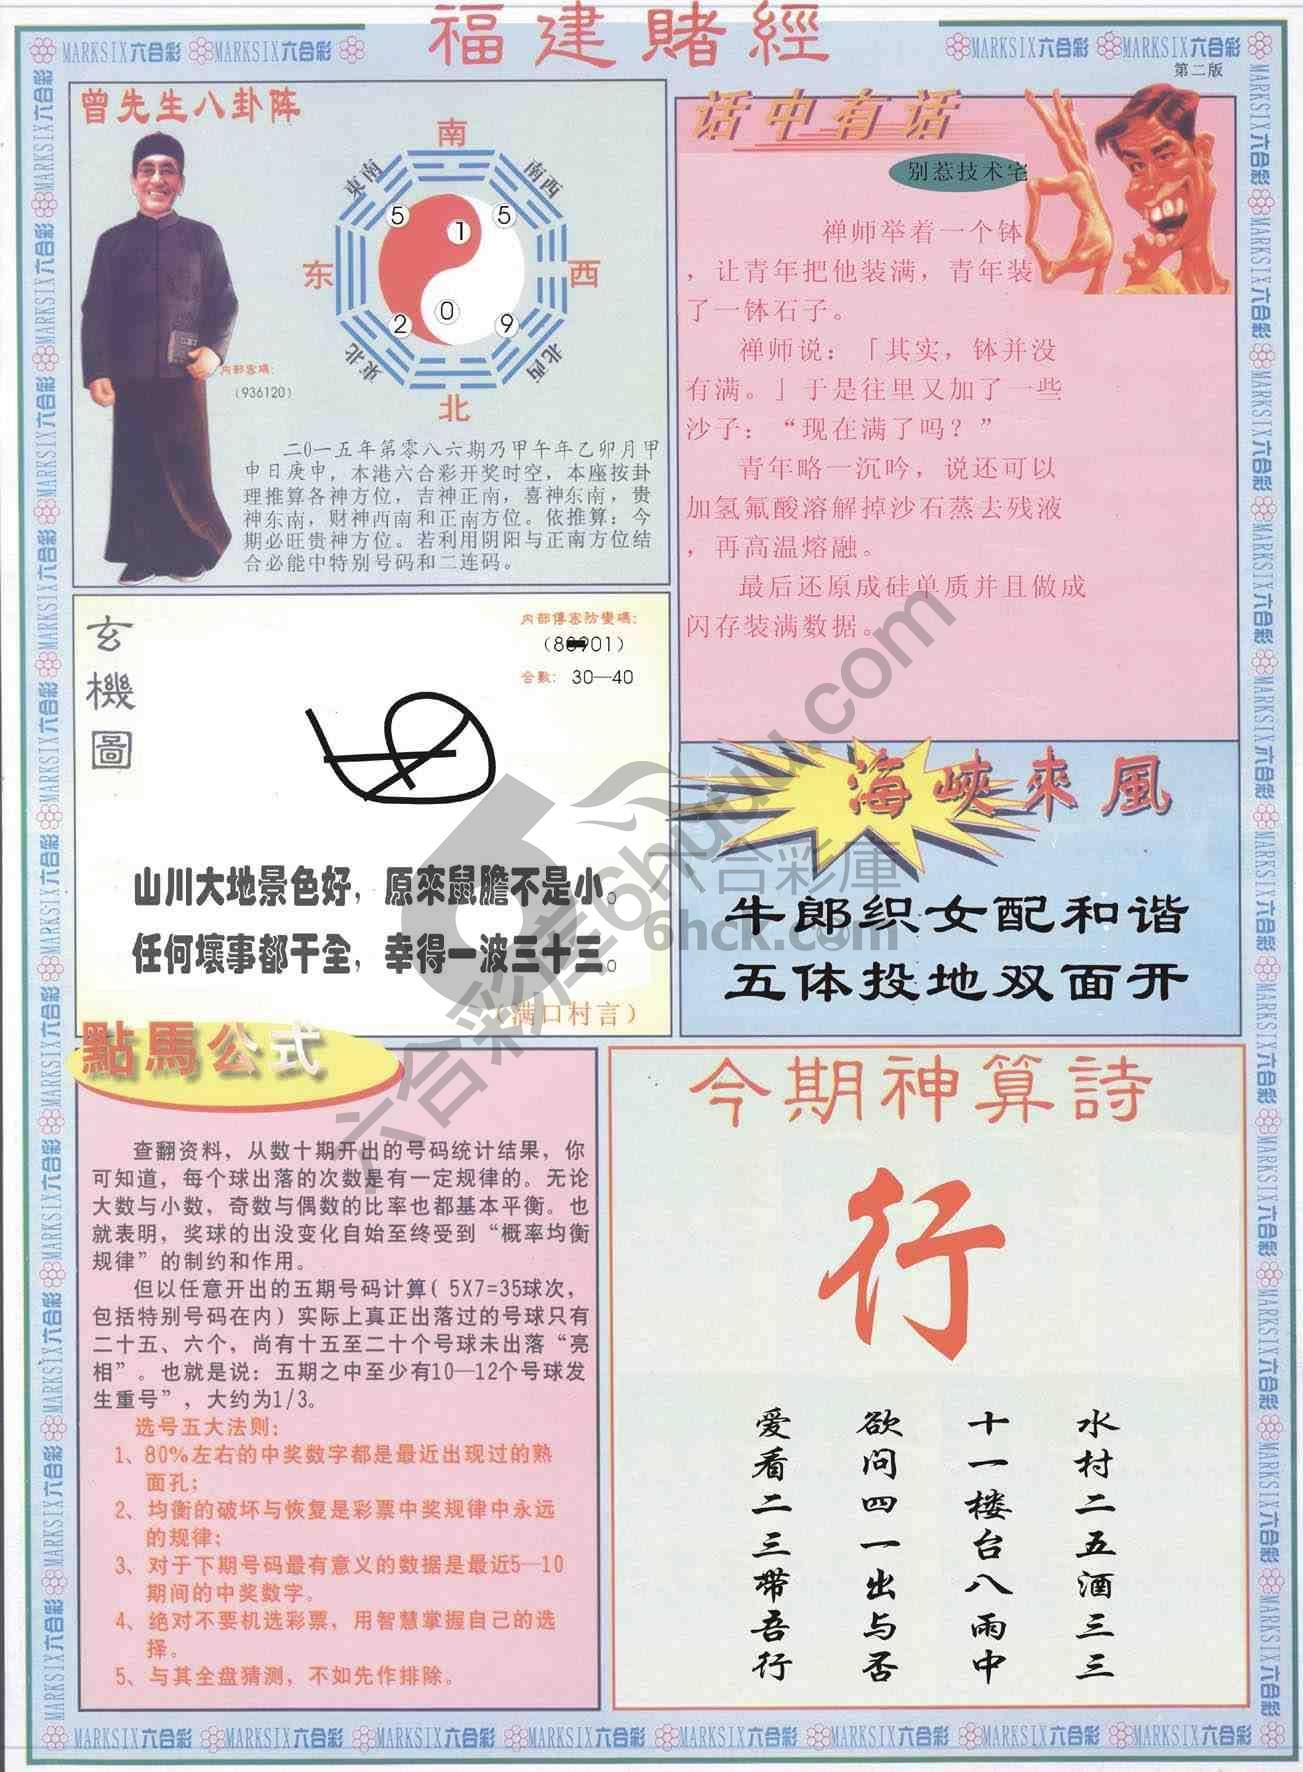 福建賭經
MARKSIX六合彩 MARKSIX六合彩
MARKSIX六合彩 MARKSIX六合彩
第二版
曾先生八卦阵
南
東南
南西
5
1
5
东
西
2
0
9
東北
北西
北
内部密碼:
(936120)
二0一五年第零八六期乃甲午年乙卯月甲
申日庚申，本港六合彩开奖时空，本座按卦
理推算各神方位，吉神正南，喜神东南，贵
神东南，财神西南和正南方位。依推算：今
期必旺贵神方位。若利用阴阳与正南方位结
合必能中特别号码和二连码。
话中有话
别惹技术宅
禅师举着一个钵
，让青年把他装满，青年装
了一钵石子。
禅师说：「其实，钵并没
有满。」于是往里又加了一些
沙子：“现在满了吗？”
青年略一沉吟，说还可以
加氢氟酸溶解掉沙石蒸去残液
，再高温熔融。
最后还原成硅单质并且做成
闪存装满数据。
玄機圖
内部傳密防變碼:
01)
合數: 30—40
山川大地景色好，原來鼠膽不是小。
任何壞事都干全，幸得一波三十三。
(满口村言)
海峽來風
牛郎织女配和谐
五体投地双面开
六合彩庫
6hck.com
點馬公式
查翻资料，从数十期开出的号码统计结果，你
可知道，每个球出落的次数是有一定规律的。无论
大数与小数，奇数与偶数的比率也都基本平衡。也
就表明，奖球的出没变化自始至终受到“概率均衡
规律”的制约和作用。
但以任意开出的五期号码计算( 5X7=35球次，
包括特别号码在内）实际上真正出落过的号球只有
二十五、六个，尚有十五至二十个号球未出落“亮
相”。也就是说：五期之中至少有10—12个号球发
生重号”，大约为1/3。
选号五大法则：
1、80%左右的中奖数字都是最近出现过的熟
面孔；
2、均衡的破坏与恢复是彩票中奖规律中永远
的规律；
3、对于下期号码最有意义的数据是最近5—10
期间的中奖数字。
4、绝对不要机选彩票，用智慧掌握自己的选
择。
5、与其全盘猜测，不如先作排除。
今期神算詩
行
水村二五酒三三
十一楼台八雨中
欲问四一出与否
爱看二三带吾行
MARKSIX六合彩 MARKSIX六合彩 MARKSIX六合彩 MARKSIX六合彩 MARKSIX六合彩 MARKSIX六合彩 MARKSIX六合彩 MARKSIX六合彩